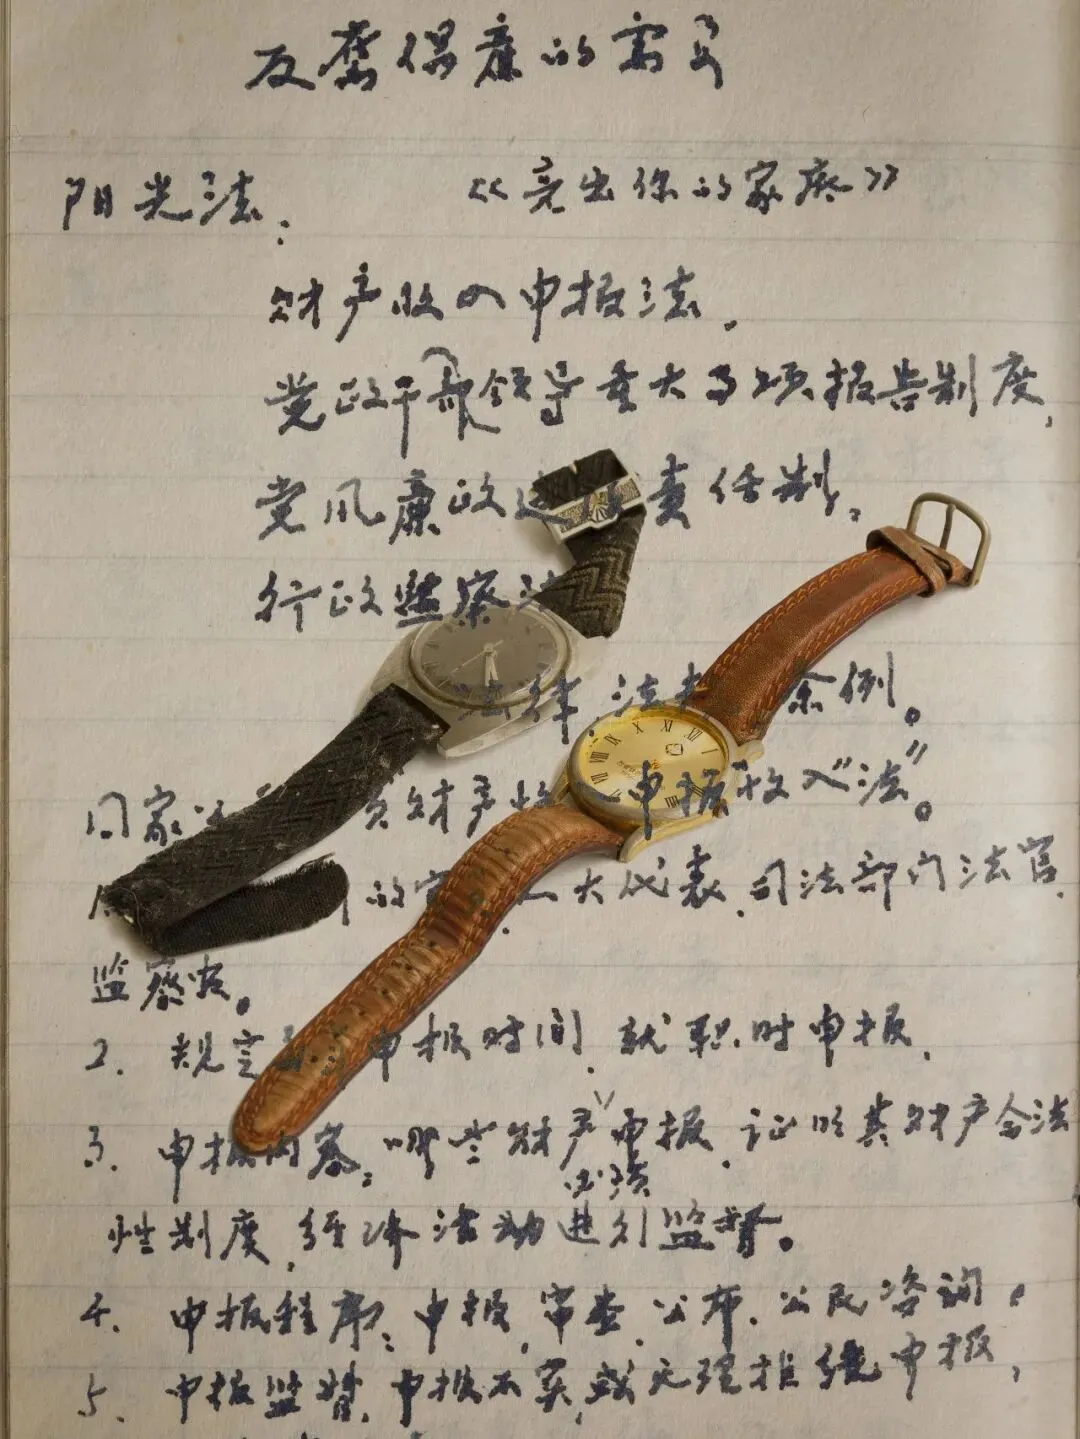 反腐保廉的寓言
阳光法: 《亮出你的家底》
财产收入申报法.
党政干部领导重大事项报告制度,
党风廉政建设责任制,
行政监察法
法律.法规 条例。
国家 财产收入申报"收入"法"。
的官 人大代表.司法部门法官.
监察官。
2. 规定 申报时间.就职时申报.
3. 申报内容:哪些财产必须申报.证明其财产合法
性制度,经济活动进行监督。
4. 申报程序:申报,审查.公布.公民咨询。
5. 申报监督.申报不实,或无理拒绝申报,